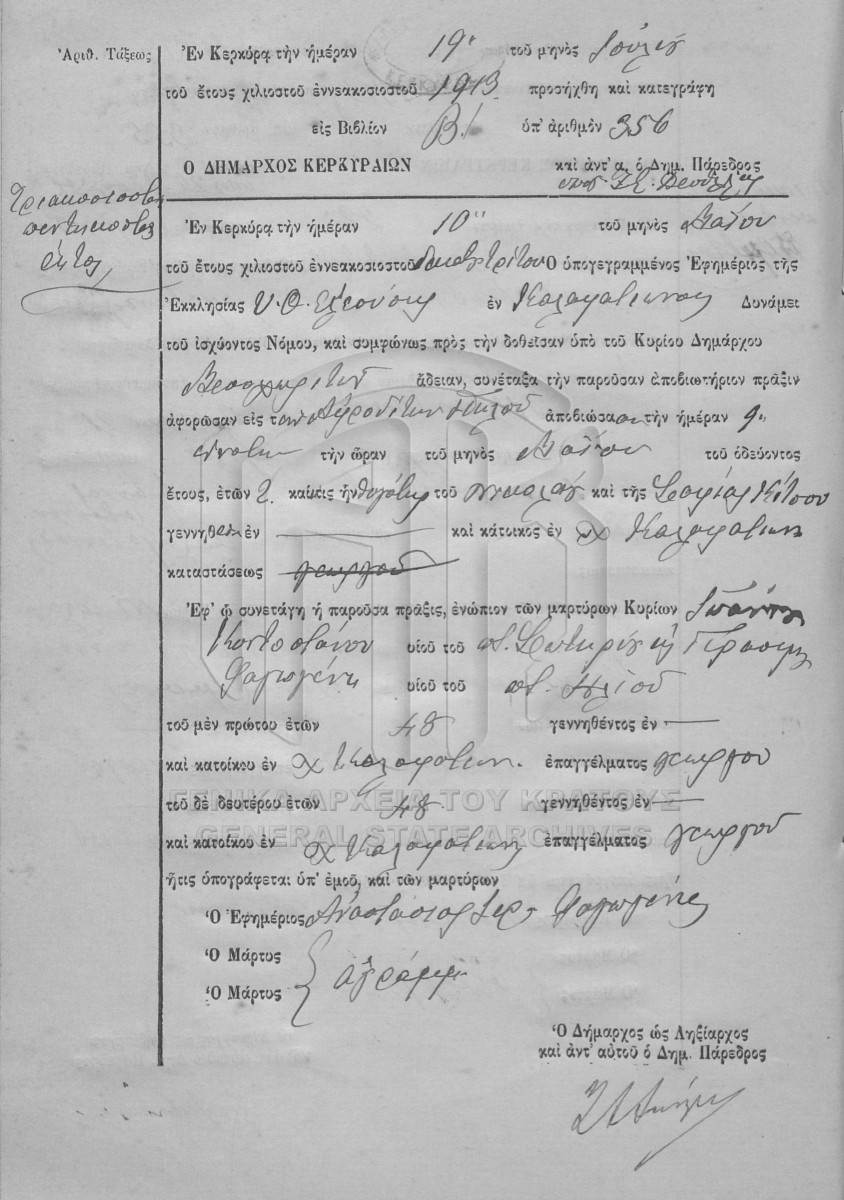 Ἀριθ. Τάξεως
Ἐν Κερκύρᾳ τὴν ἡμέραν 19 τοῦ μηνὸς Ἰουλίου
τοῦ ἔτους χιλιοστοῦ ἐννεακοσιοστοῦ 1913 προσήχθη καὶ κατεγράφη
εἰς Βιβλίον Β! ὑπ' ἀριθμὸν 356
Ὁ ΔΗΜΑΡΧΟΣ ΚΕΡΚΥΡΑΙΩΝ καὶ ἀντ' α. ὁ Δημ. Πάρεδρος
Τριακοσιοστὸν
πεντηκοστὸν
ἕκτον
Ἐν Κερκύρᾳ τὴν ἡμέραν 10 τοῦ μηνὸς Μαΐου
τοῦ ἔτους χιλιοστοῦ ἐννεακοσιοστοῦ δεκάτου τρίτου Ὁ ὑπογεγραμμένος Ἐφημέριος τῆς
Ἐκκλησίας Υ. Θ. Ἐλεούσης ἐν Καλαφατιώνας Δυνάμει
τοῦ ἰσχύοντος Νόμου, καὶ συμφώνως πρὸς τὴν δοθεῖσαν ὑπὸ τοῦ Κυρίου Δημάρχου
ἄδειαν, συνέταξα τὴν παροῦσαν ἀποβιωτήριον πρᾶξιν
ἀφορῶσαν εἰς τὴν Ἀφροδίτην ἀποβιώσασαν τὴν ἡμέραν 9
ἐννάτην τὴν ὥραν τοῦ μηνὸς Μαΐου τοῦ ὁδεύοντος
ἔτους, ἐτῶν 2 καὶ τις ἦν θυγάτηρ τοῦ Νικολάου καὶ τῆς Σοφίας Κίτσου
γεννηθεῖσα ἐν καὶ κάτοικος ἐν χ Καλαφατιών
καταστάσεως γεωργοῦ
Ἐφ' ᾧ συνετάγη ἡ παροῦσα πρᾶξις, ἐνώπιον τῶν μαρτύρων Κυρίων Ἰωάννη
Κοντοστάνου υἱοῦ τοῦ π. Σωτηρίου καὶ Γερασίμου
Φαγωγένη υἱοῦ τοῦ π. Ἠλίου
τοῦ μὲν πρώτου ἐτῶν 48 γεννηθέντος ἐν
καὶ κατοίκου ἐν χ Καλαφατιων. ἐπαγγέλματος γεωργοῦ
τοῦ δὲ δευτέρου ἐτῶν 48 γεννηθέντος ἐν
ΓΕΝΙΚΑ ΑΡΧΕΙΑ ΤΟΥ ΚΡΑΤΟΥΣ
GENERAL STATE ARCHIVES
καὶ κατοίκου ἐν χ Καλαφατιων ἐπαγγέλματος γεωργοῦ
ἥτις ὑπογράφεται ὑπ' ἐμοῦ, καὶ τῶν μαρτύρων
Ὁ Ἐφημέριος Ἀναστάσιος Ἱερ. Φαγωγένης
Ὁ Μάρτυς
ἀγράμμ
Ὁ Μάρτυς
Ὁ Δήμαρχος ὡς Ληξίαρχος
καὶ ἀντ' αὐτοῦ ὁ Δημ. Πάρεδρος